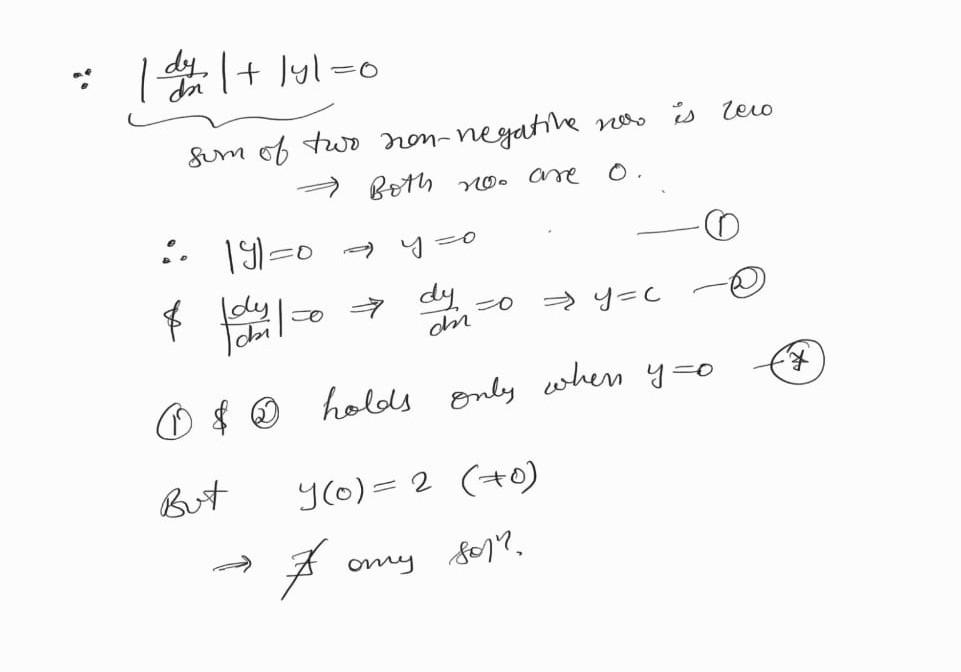 ∵ |dy/dx| + |y| = 0
sum of two non-negative nos is zero
⇒ Both no. are 0.
∴ |y| = 0 ⇒ y = 0 — ①
& |dy/dx| = 0 ⇒ dy/dx = 0 ⇒ y = c — ②
① & ② holds only when y = 0 — *
But y(0) = 2 (≠0)
⇒ ∄ any solⁿ.